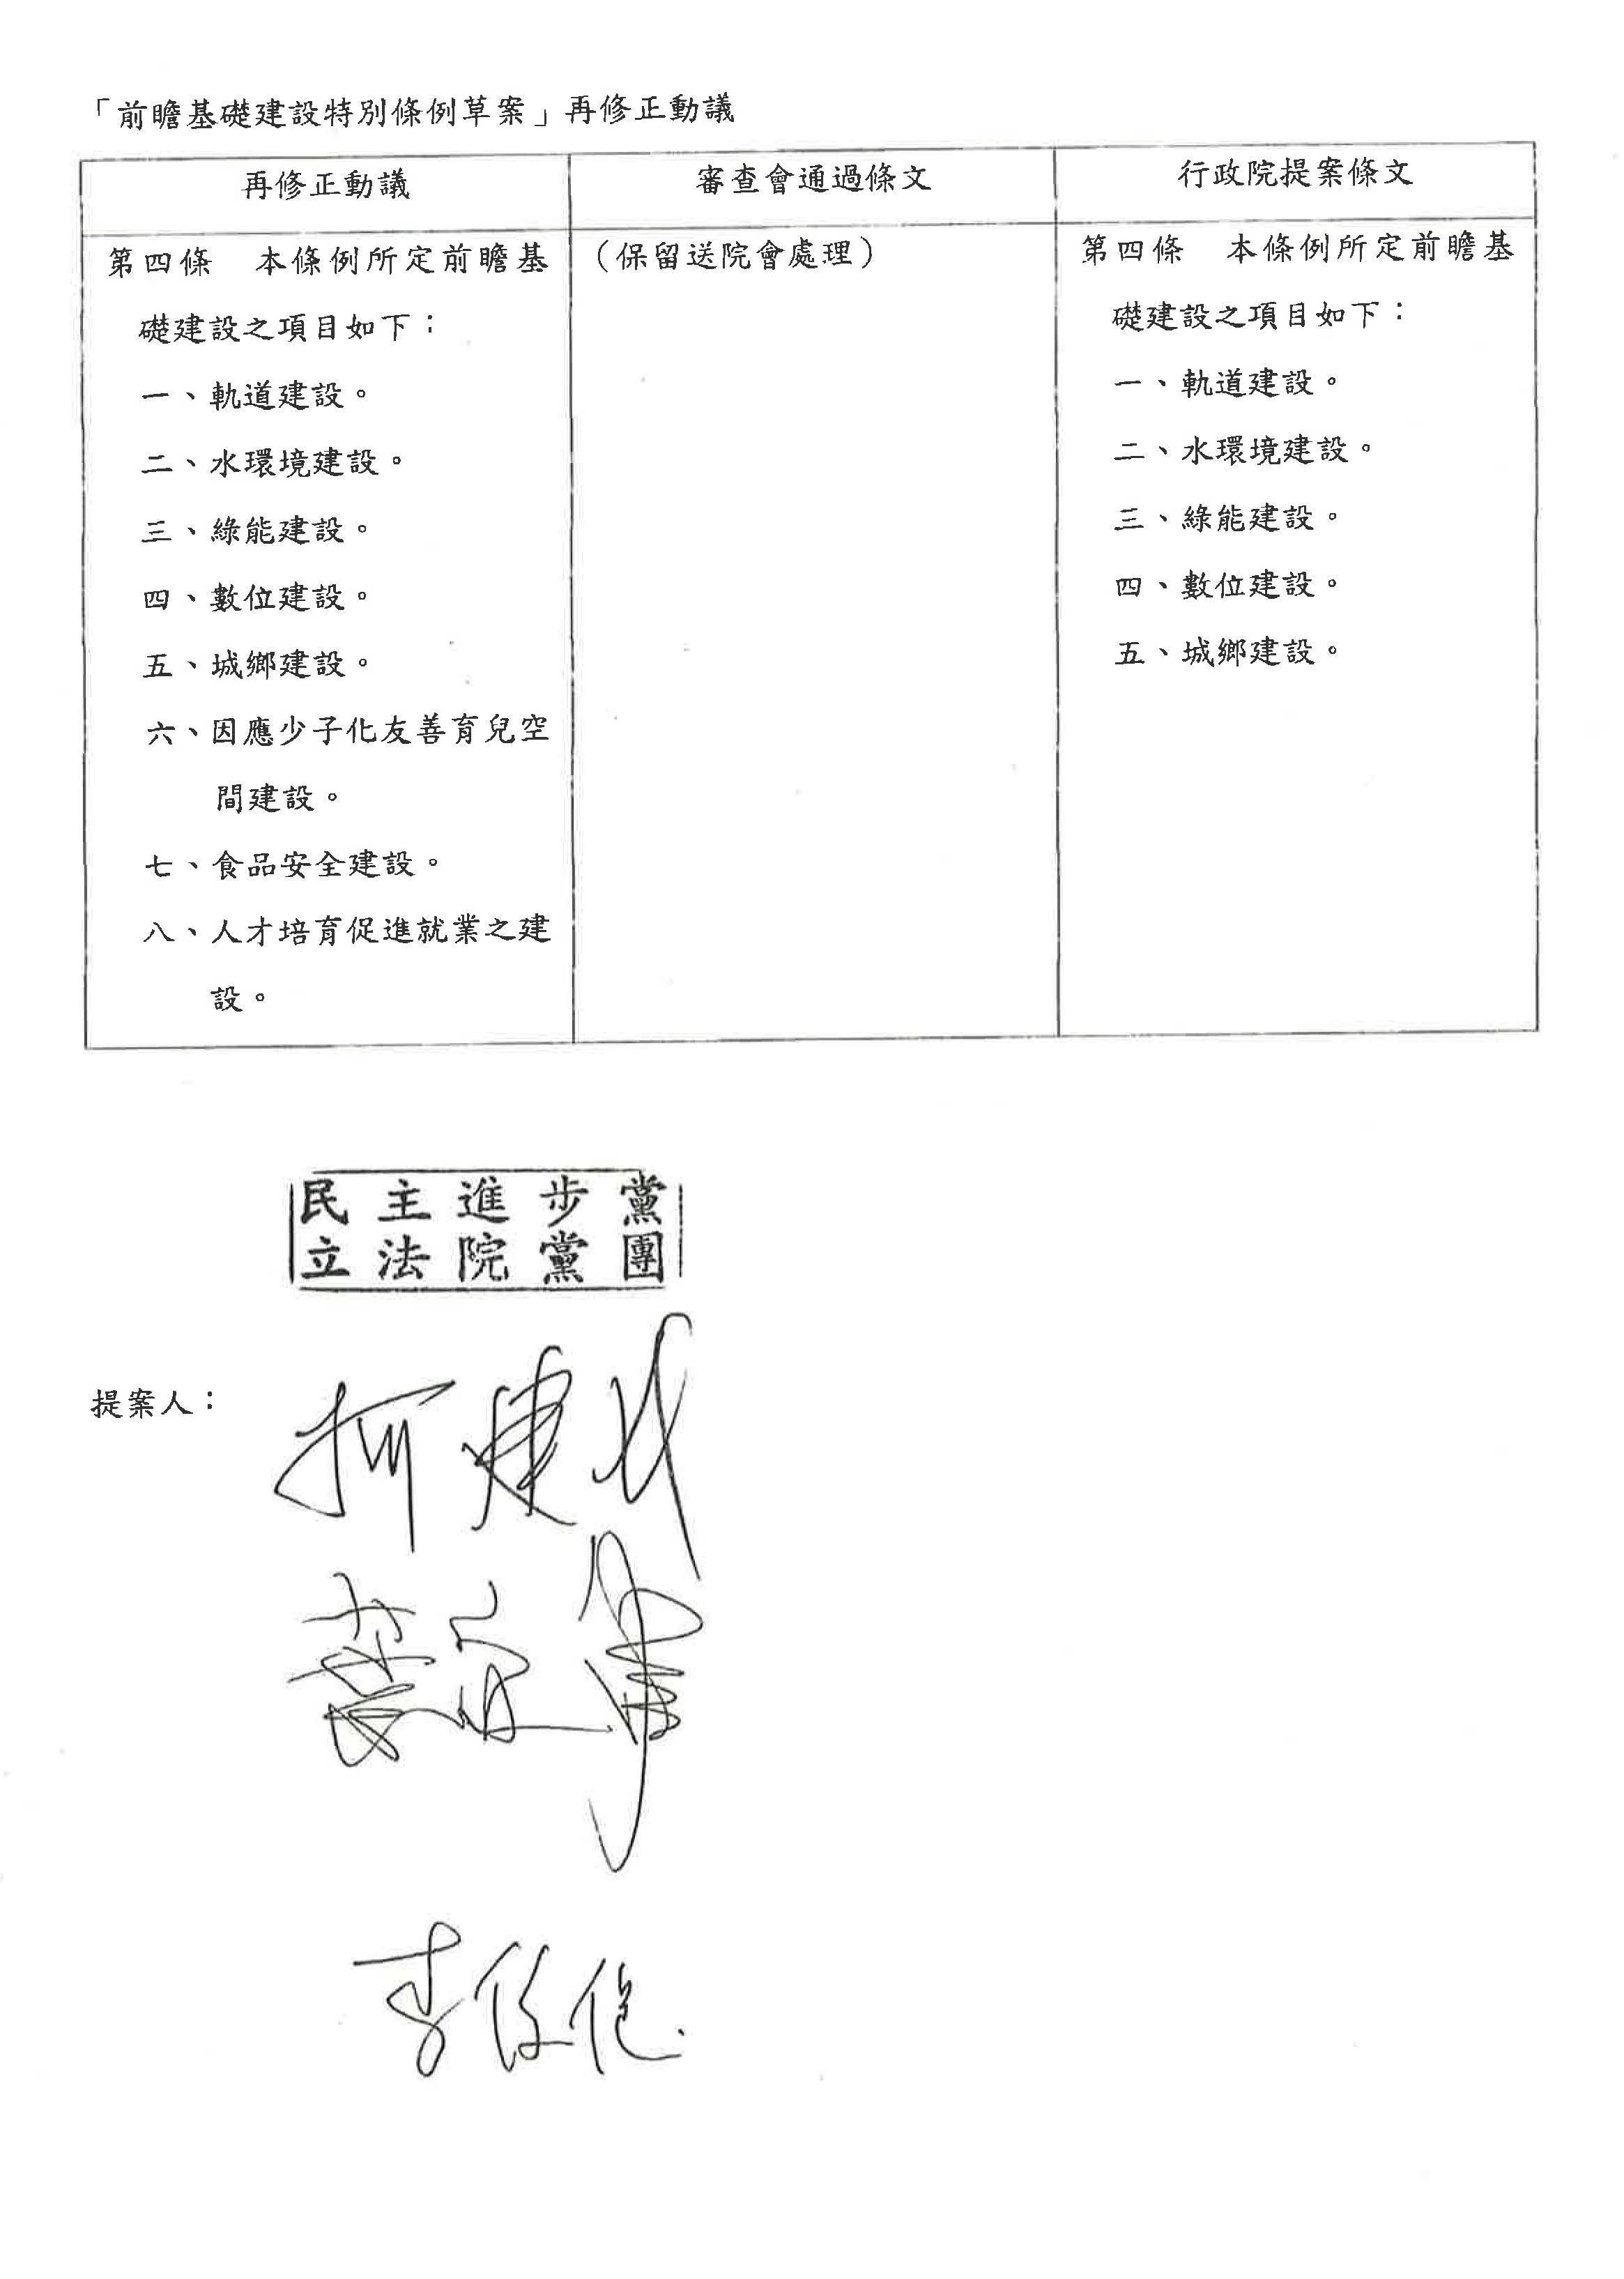 「前瞻基礎建設特別條例草案」再修正動議
再修正動議
審查會通過條文
行政院提案條文
第四條　本條例所定前瞻基
礎建設之項目如下：
一、軌道建設。
二、水環境建設。
三、綠能建設。
四、數位建設。
五、城鄉建設。
六、因應少子化友善育兒空
間建設。
七、食品安全建設。
八、人才培育促進就業之建
設。
（保留送院會處理）
第四條　本條例所定前瞻基
礎建設之項目如下：
一、軌道建設。
二、水環境建設。
三、綠能建設。
四、數位建設。
五、城鄉建設。
民主進步黨
立法院黨團
提案人：
柯建
李俊俋